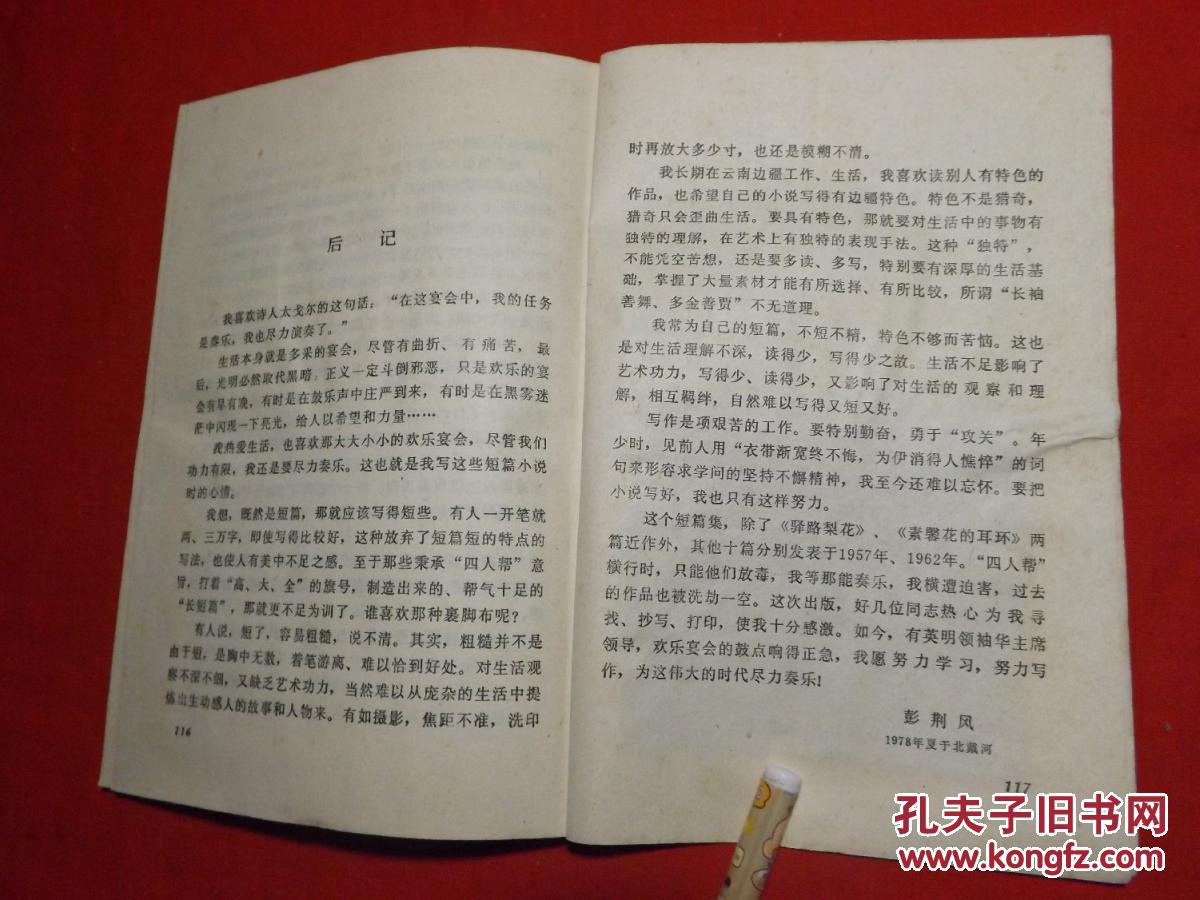 后 记
我喜欢诗人太戈尔的这句话：“在这宴会中，我的任务
是奏乐，我也尽力演奏了。”
生活本身就是多采的宴会，尽管有曲折、有痛苦，最
后，光明必然取代黑暗，正义一定斗倒邪恶，只是欢乐的宴
会有早有晚，有时是在鼓乐声中庄严到来，有时是在黑雾迷
茫中闪现一下亮光，给人以希望和力量……
我热爱生活，也喜欢那大大小小的欢乐宴会，尽管我们
功力有限，我还是要尽力奏乐。这也就是我写这些短篇小说
时的心情。
我想，既然是短篇，那就应该写得短些。有人一开笔就
两、三万字，即使写得比较好，这种放弃了短篇短的特点的
写法，也使人有美中不足之感。至于那些秉承“四人帮”意
旨，打着“高、大、全”的旗号，制造出来的、帮气十足的
“长短篇”，那就更不足为训了。谁喜欢那种裹脚布呢？
有人说，短了，容易粗糙，说不清。其实，粗糙并不是
由于短，是胸中无数，着笔游离、难以恰到好处。对生活观
察不深不细，又缺乏艺术功力，当然难以从庞杂的生活中提
炼出生动感人的故事和人物来。有如摄影，焦距不准，洗印
116
时再放大多少寸，也还是模糊不清。
我长期在云南边疆工作、生活，我喜欢读别人有特色的
作品，也希望自己的小说写得有边疆特色。特色不是猎奇，
猎奇只会歪曲生活。要具有特色，那就要对生活中的事物有
独特的理解，在艺术上有独特的表现手法。这种“独特”，
不能凭空苦想，还是要多读、多写，特别要有深厚的生活基
础，掌握了大量素材才能有所选择、有所比较，所谓“长袖
善舞、多金善贾”不无道理。
我常为自己的短篇，不短不精，特色不够而苦恼。这也
是对生活理解不深，读得少，写得少之故。生活不足影响了
艺术功力，写得少、读得少，又影响了对生活的观察和理
解，相互羁绊，自然难以写得又短又好。
写作是项艰苦的工作。要特别勤奋，勇于“攻关”。年
少时，见前人用“衣带渐宽终不悔，为伊消得人憔悴”的词
句来形容求学问的坚持不懈精神，我至今还难以忘怀。要把
小说写好，我也只有这样努力。
这个短篇集，除了《驿路梨花》、《素馨花的耳环》两
篇近作外，其他十篇分别发表于1957年、1962年。“四人帮”
横行时，只能他们放毒，我等那能奏乐，我横遭迫害，过去
的作品也被洗劫一空。这次出版，好几位同志热心为我寻
找、抄写、打印，使我十分感激。如今，有英明领袖华主席
领导，欢乐宴会的鼓点响得正急，我愿努力学习，努力写
作，为这伟大的时代尽力奏乐！
彭荆风
1978年夏于北戴河
117
孔夫子旧书网
www.kongfz.com